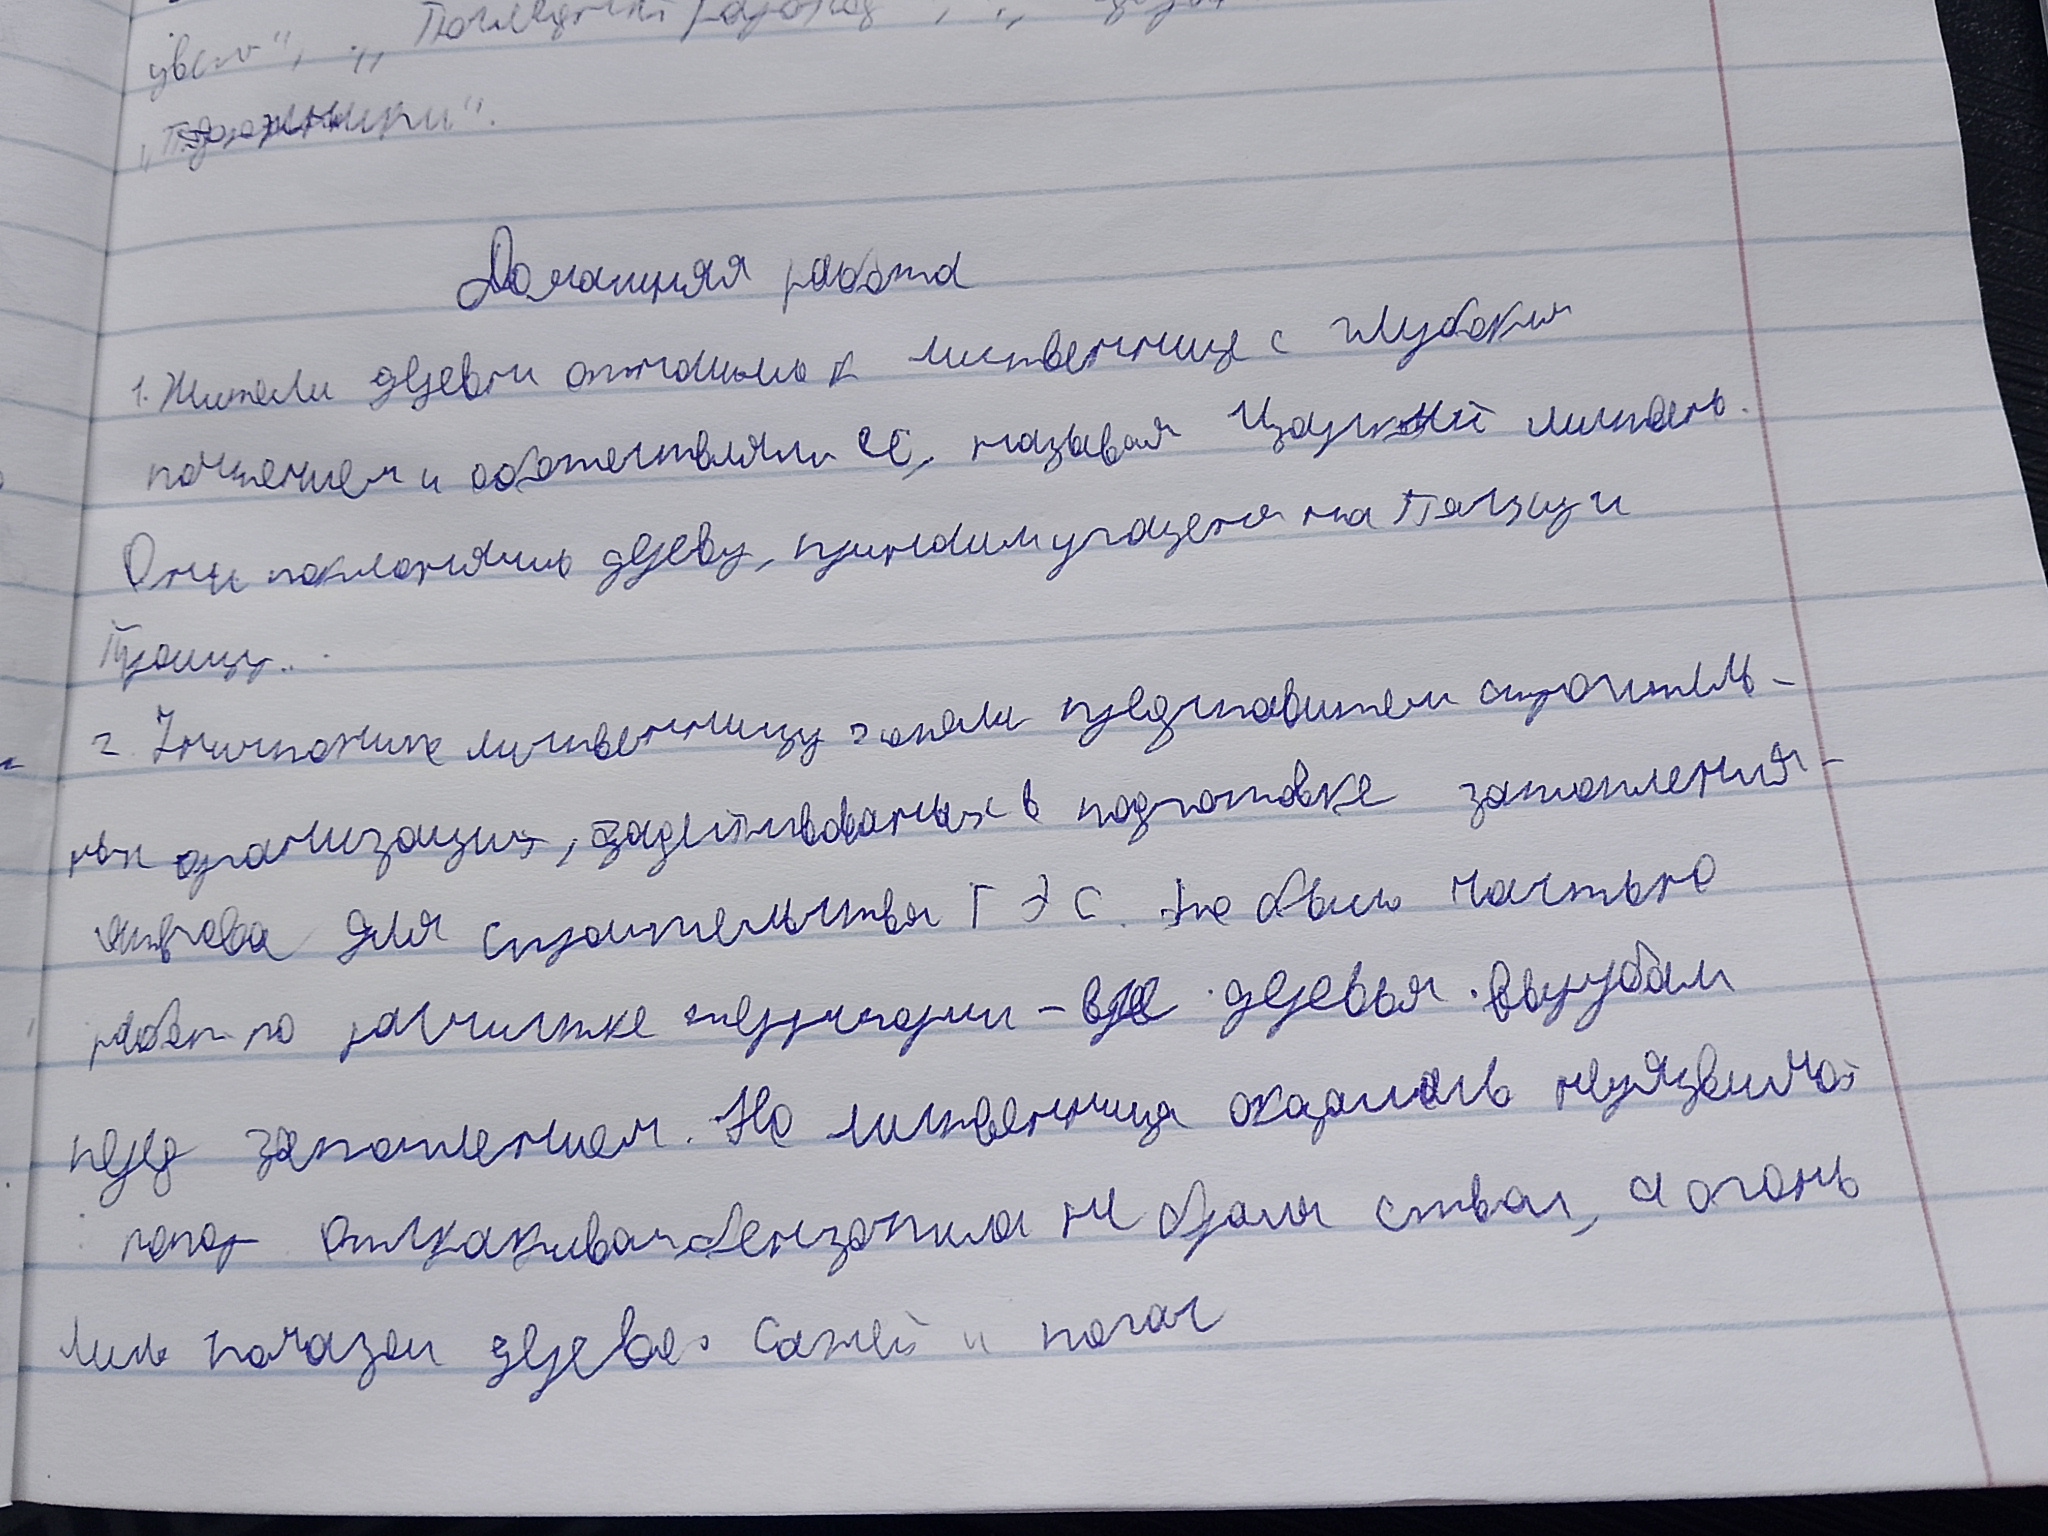 "
Домашняя работа
1. Жители деревни относились к лиственнице с глубоким
почтением и обожествляли её, называя "Царский листвень".
Они поклонялись дереву, приносили угощения на Пасху и
Троицу.
2. Уничтожить лиственницу хотели представители строитель-
ных организаций, задействованных в подготовке затопления
острова для строительства ГЭС. Это было частью
работ по расчистке территории - все деревья вырубали
перед затоплением. Но лиственница оказалась неуязвимой
топор отскакивал бензопила не брала ствол, а огонь
лишь помазал дерево сажей и погас